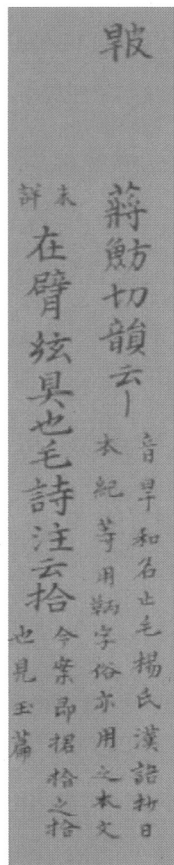 蔣魴切韻云｜
音旱和名止毛楊氏漢語抄日
本紀等用鞆字俗亦用之本文
未
詳
在臂弦具也毛詩注云拾
今案即捃拾之拾
也見玉篇